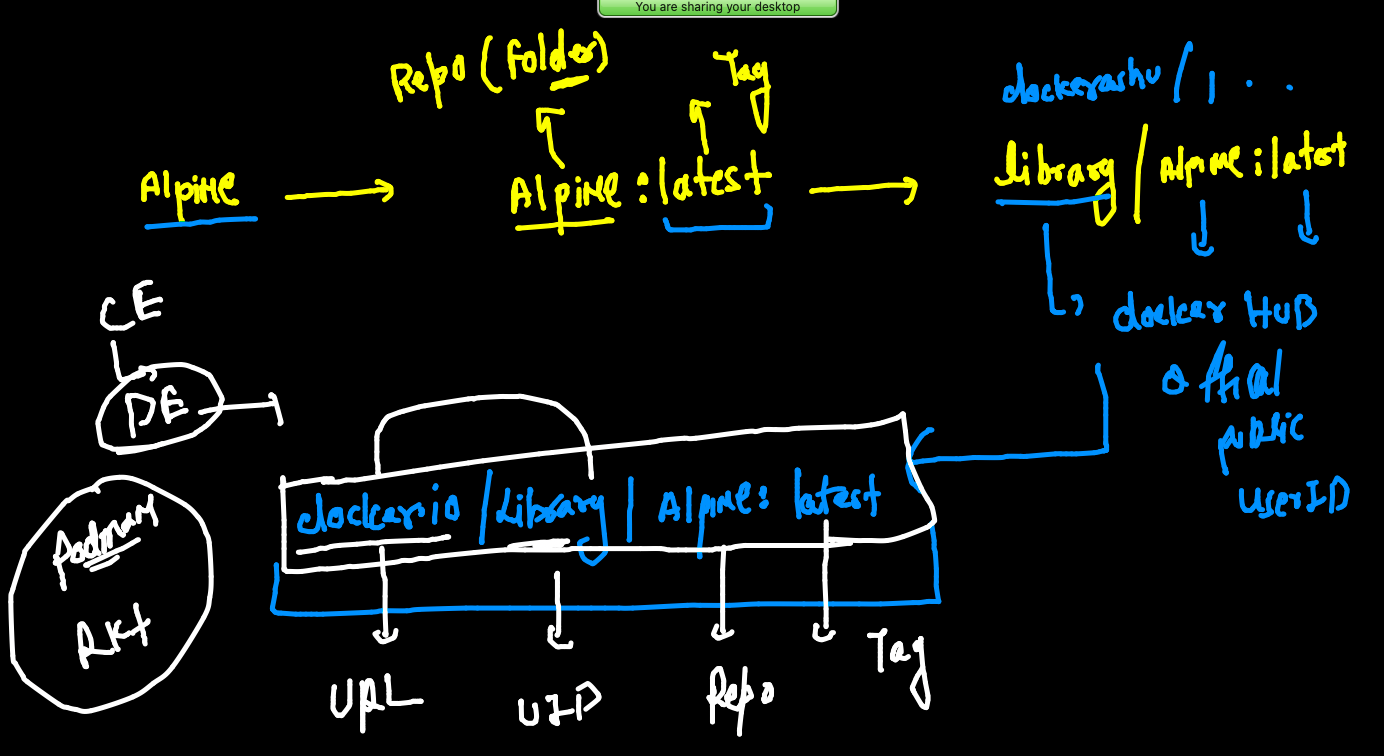 You are sharing your desktop
Repo (folder)
Tag
dockerashu / , . .
Alpine
Alpine : latest
library / Alpine : latest
CE
DE
docker HUB
official
public
userID
docker.io / Library / Alpine : latest
podman
RKt
URL
UID
Repo
Tag